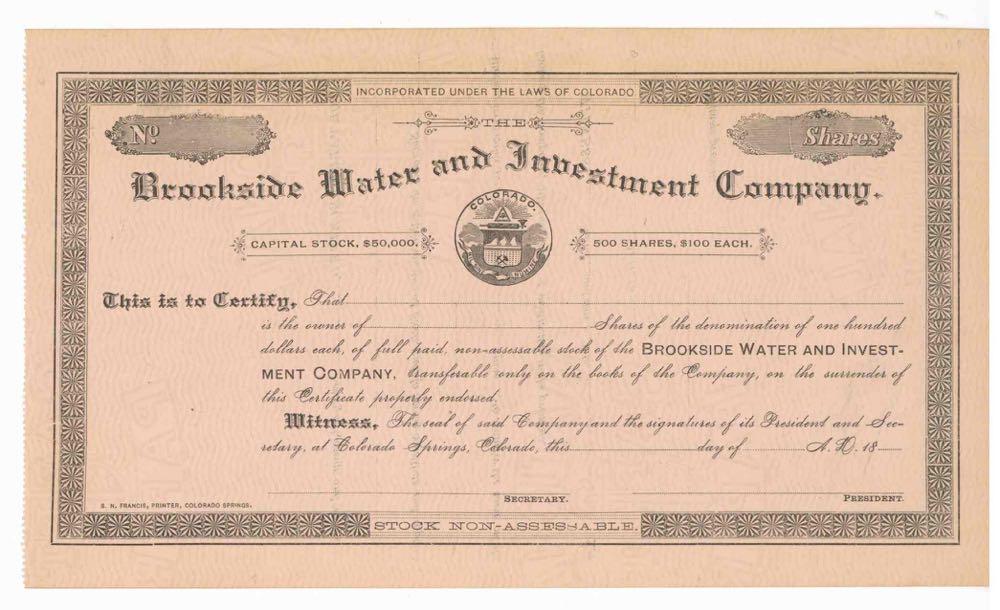 INCORPORATED UNDER THE LAWS OF COLORADO
THE
No.
Shares
Brookside Water and Investment Company.
COLORADO.
CAPITAL STOCK, $50,000.
500 SHARES, $100 EACH.
This is to Certify, That
is the owner of Shares of the denomination of one hundred
dollars each, of full paid, non-assessable stock of the BROOKSIDE WATER AND INVEST-
MENT COMPANY, transferable only on the books of the Company, on the surrender of
this Certificate properly endorsed.
Witness, The seal of said Company and the signatures of its President and Sec-
retary, at Colorado Springs, Colorado, this day of A. D. 18
SECRETARY.
PRESIDENT.
S. N. FRANCIS, PRINTER, COLORADO SPRINGS.
STOCK NON-ASSESSABLE.